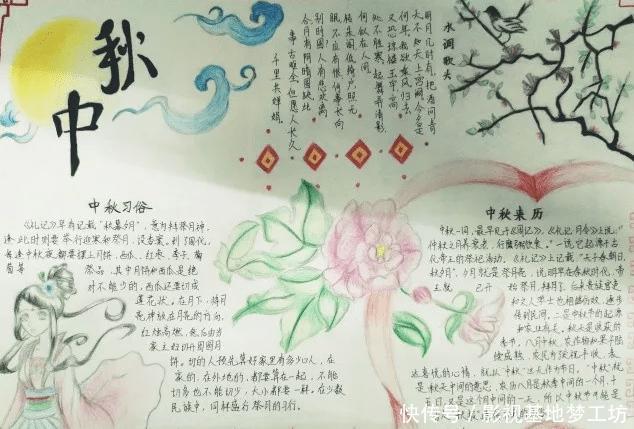 中秋
水调歌头
明月几时有,把酒问青
天。不知天上宫阙,今夕是
何年。我欲乘风归去,
又恐琼楼玉宇,高
处不胜寒。起舞弄清影,
何似在人间。
转朱阁,低绮户,照无
眠。不应有恨,何事长向
别时圆?人有悲欢离
合,月有阴晴圆缺,此
事古难全。但愿人长久,
千里共婵娟。
中秋习俗
《礼记》早有记载“秋暮夕月”,意为拜祭月神,
逢此时则要举行迎寒和祭月,设香案。到了周代,
每逢中秋夜都要摆上月饼、西瓜、红枣、李子、葡
萄等祭品,其中月饼和西瓜是绝
对不能少的,西瓜还要切成
莲花状。在月下,将月
亮神放在月亮的方向,
红烛高燃,然后由当
家主妇切开团圆月
饼。切的人预先算好家里有多少口人,在
家的,在外地的,都要算在一起,不能
切多也不能切少,大小都要一样。在少数
民族中,同样盛行祭月的习行。
中秋来历
中秋一词,最早见于《周记》。《礼记·月令》上说:“
仲秋之月养衰老,行糜粥饮食。”一说它起源于古
代帝王的祭祀活动。《礼记》上记载:“天子春朝日,
秋夕月”,夕月就是祭月亮,说明早在春秋时代,帝
王就已开始祭月、拜月了。后来贵族官吏
和文人学士也相继仿效,逐步
传到民间。二是中秋节的起源
和农业有关。秋天是收获的
季节。八月中秋,农作物和果子陆
续成熟,农民为庆祝丰收,表
达喜悦的心情,就以“中秋”这天作为节日。“中秋”就
是秋天中间的意思,农历八月是秋季中间的一个月,十
五日又是这个月中间的一天,所以中秋节可能是
快传号 / 影视基地梦工坊